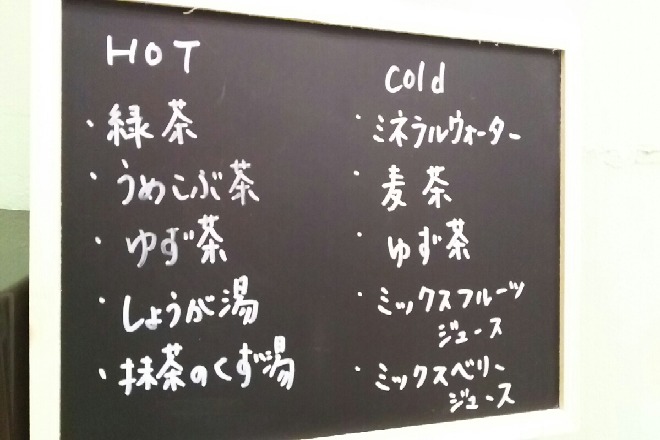 HOT
・緑茶
・うめこぶ茶
・ゆず茶
・しょうが湯
・抹茶のくず湯
Cold
・ミネラルウォーター
・麦茶
・ゆず茶
・ミックスフルーツ
ジュース
・ミックスベリー
ジュース